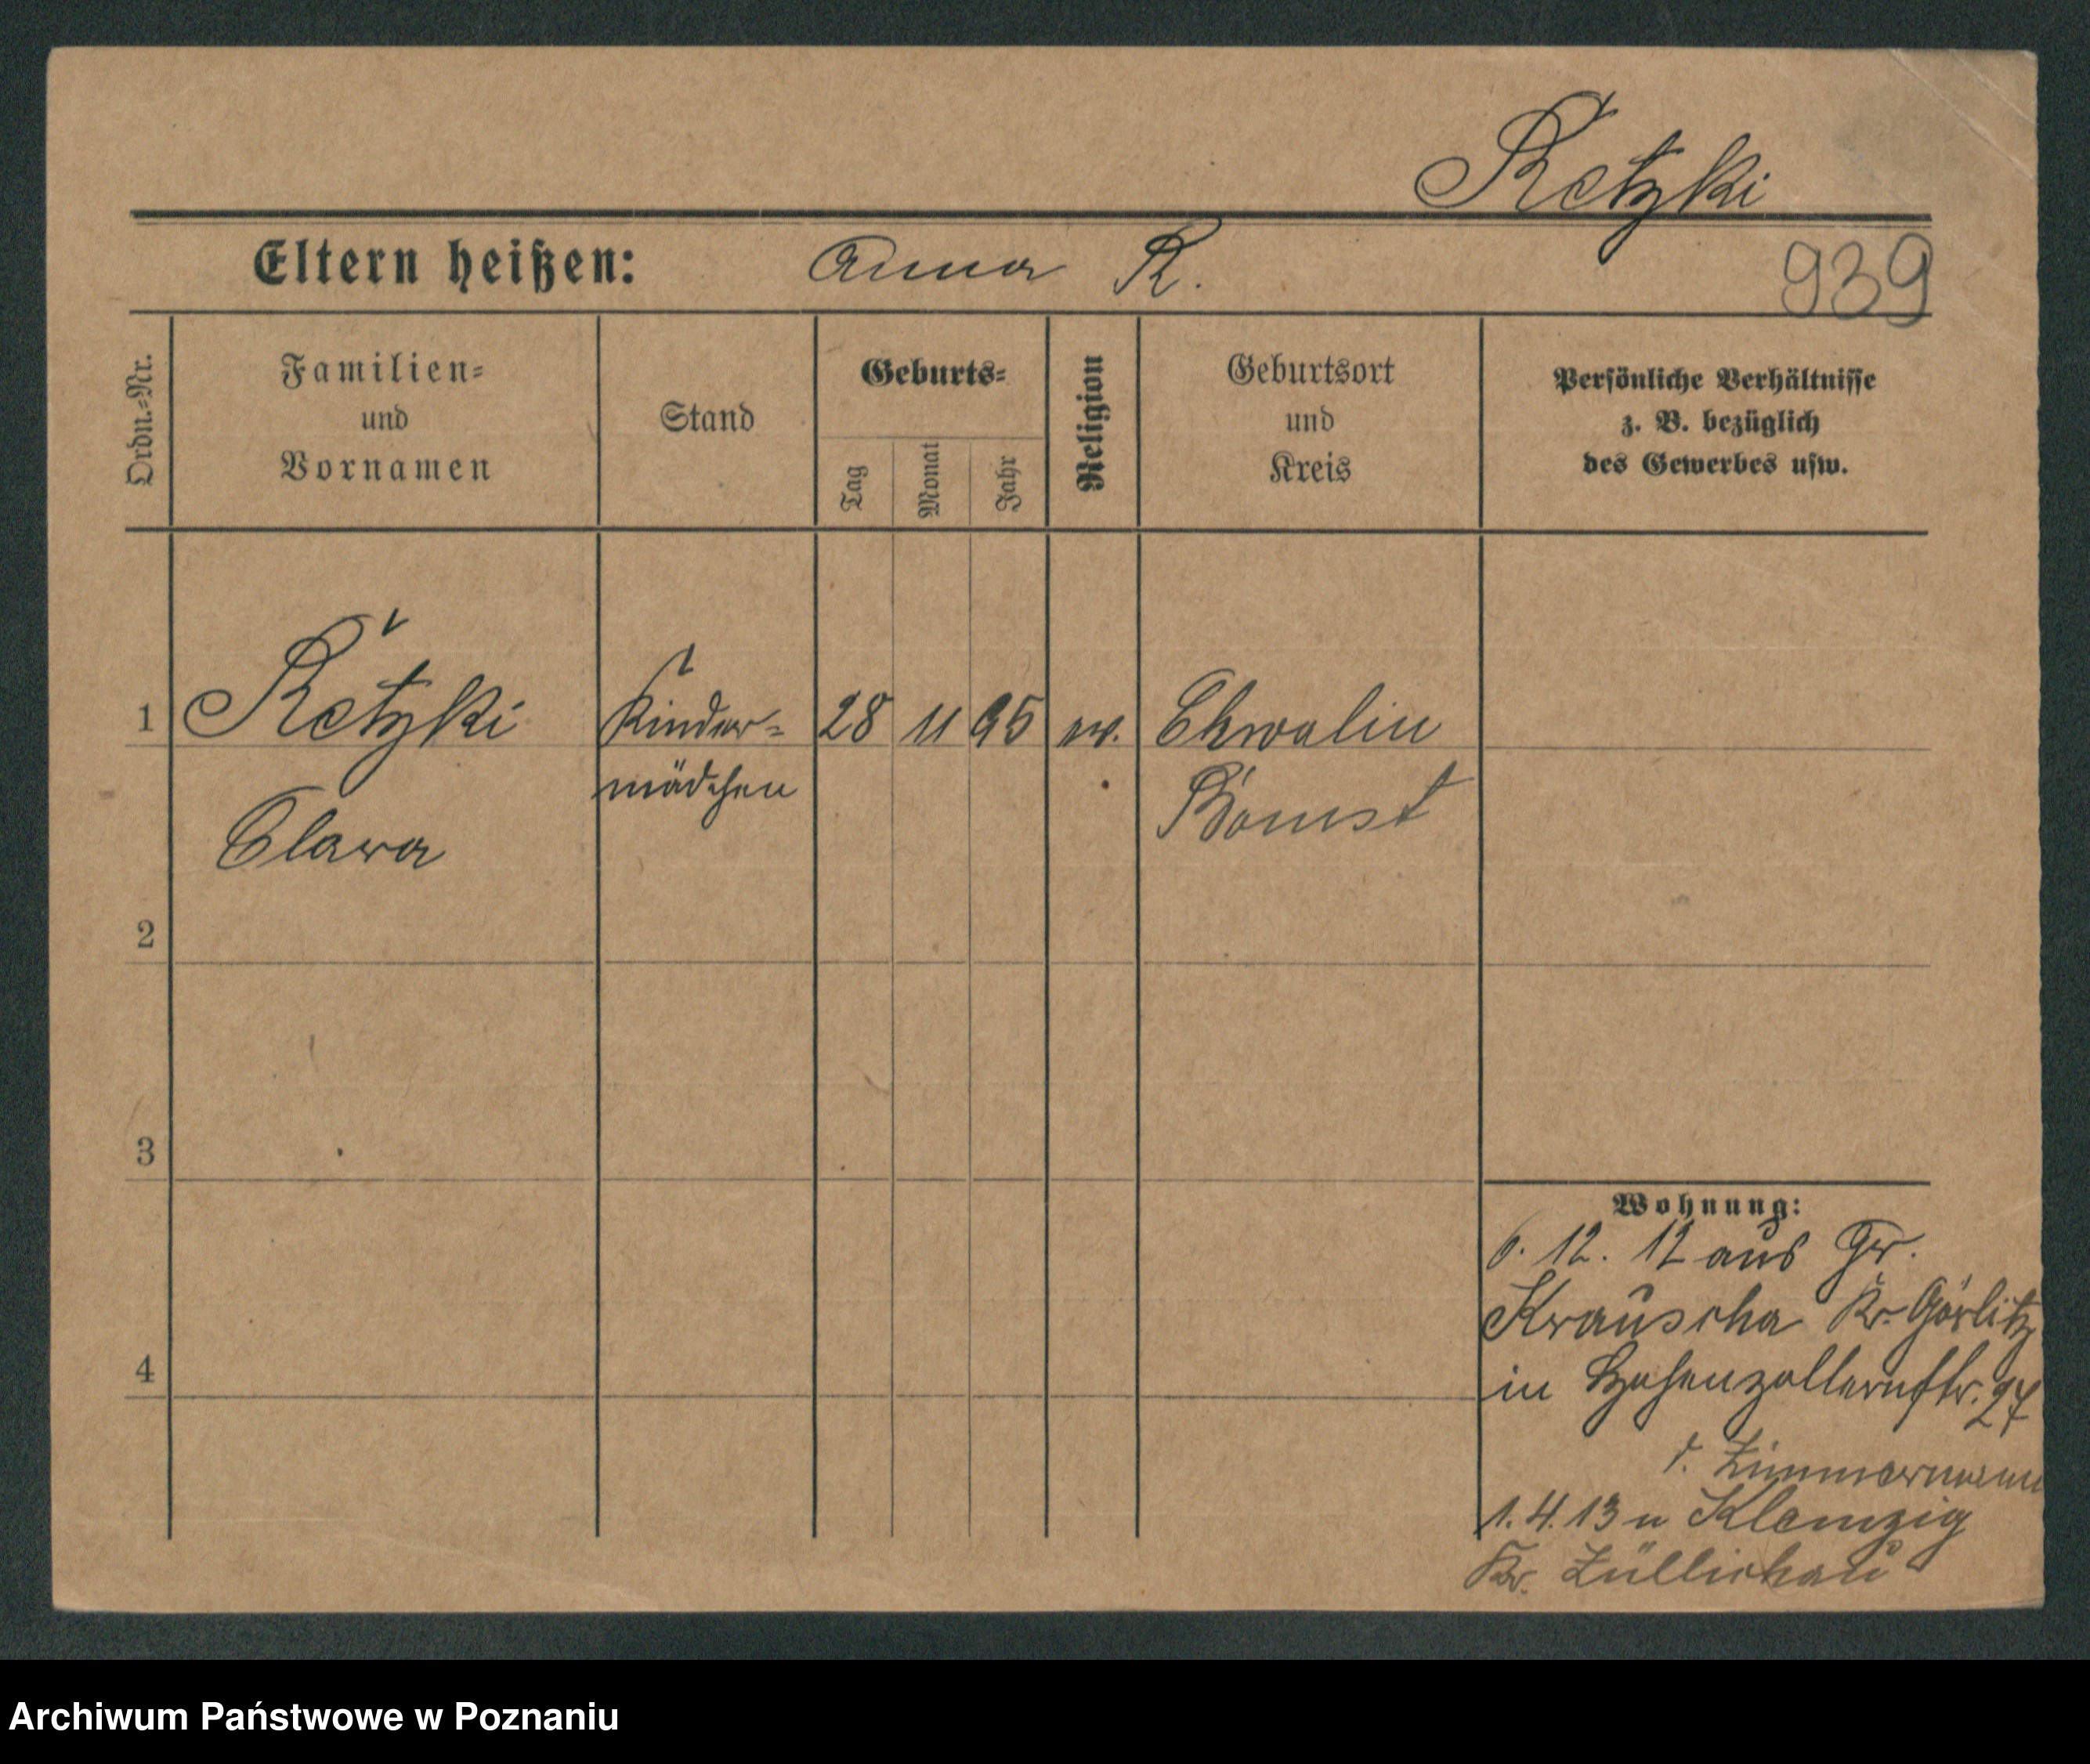 Retzki
Eltern heißen: Anna R.
939
Ordn.-Nr.
Familien-
und
Vornamen
Stand
Geburts-
Tag
Monat
Jahr
Religion
Geburtsort
und
Kreis
Persönliche Verhältnisse
z. B. bezüglich
des Gewerbes usw.
1 Retzki Kinder- 28 11 95 ev. Chwalin
mädchen Bomst
Clara
2
3
4
Wohnung:
6. 12. 12 aus Gr.
Krauscha Kr. Görlitz
in Hohenzollernstr. 27
Zimmermann
1. 4. 13 n Klemzig
Kr. Züllichau
Archiwum Państwowe w Poznaniu